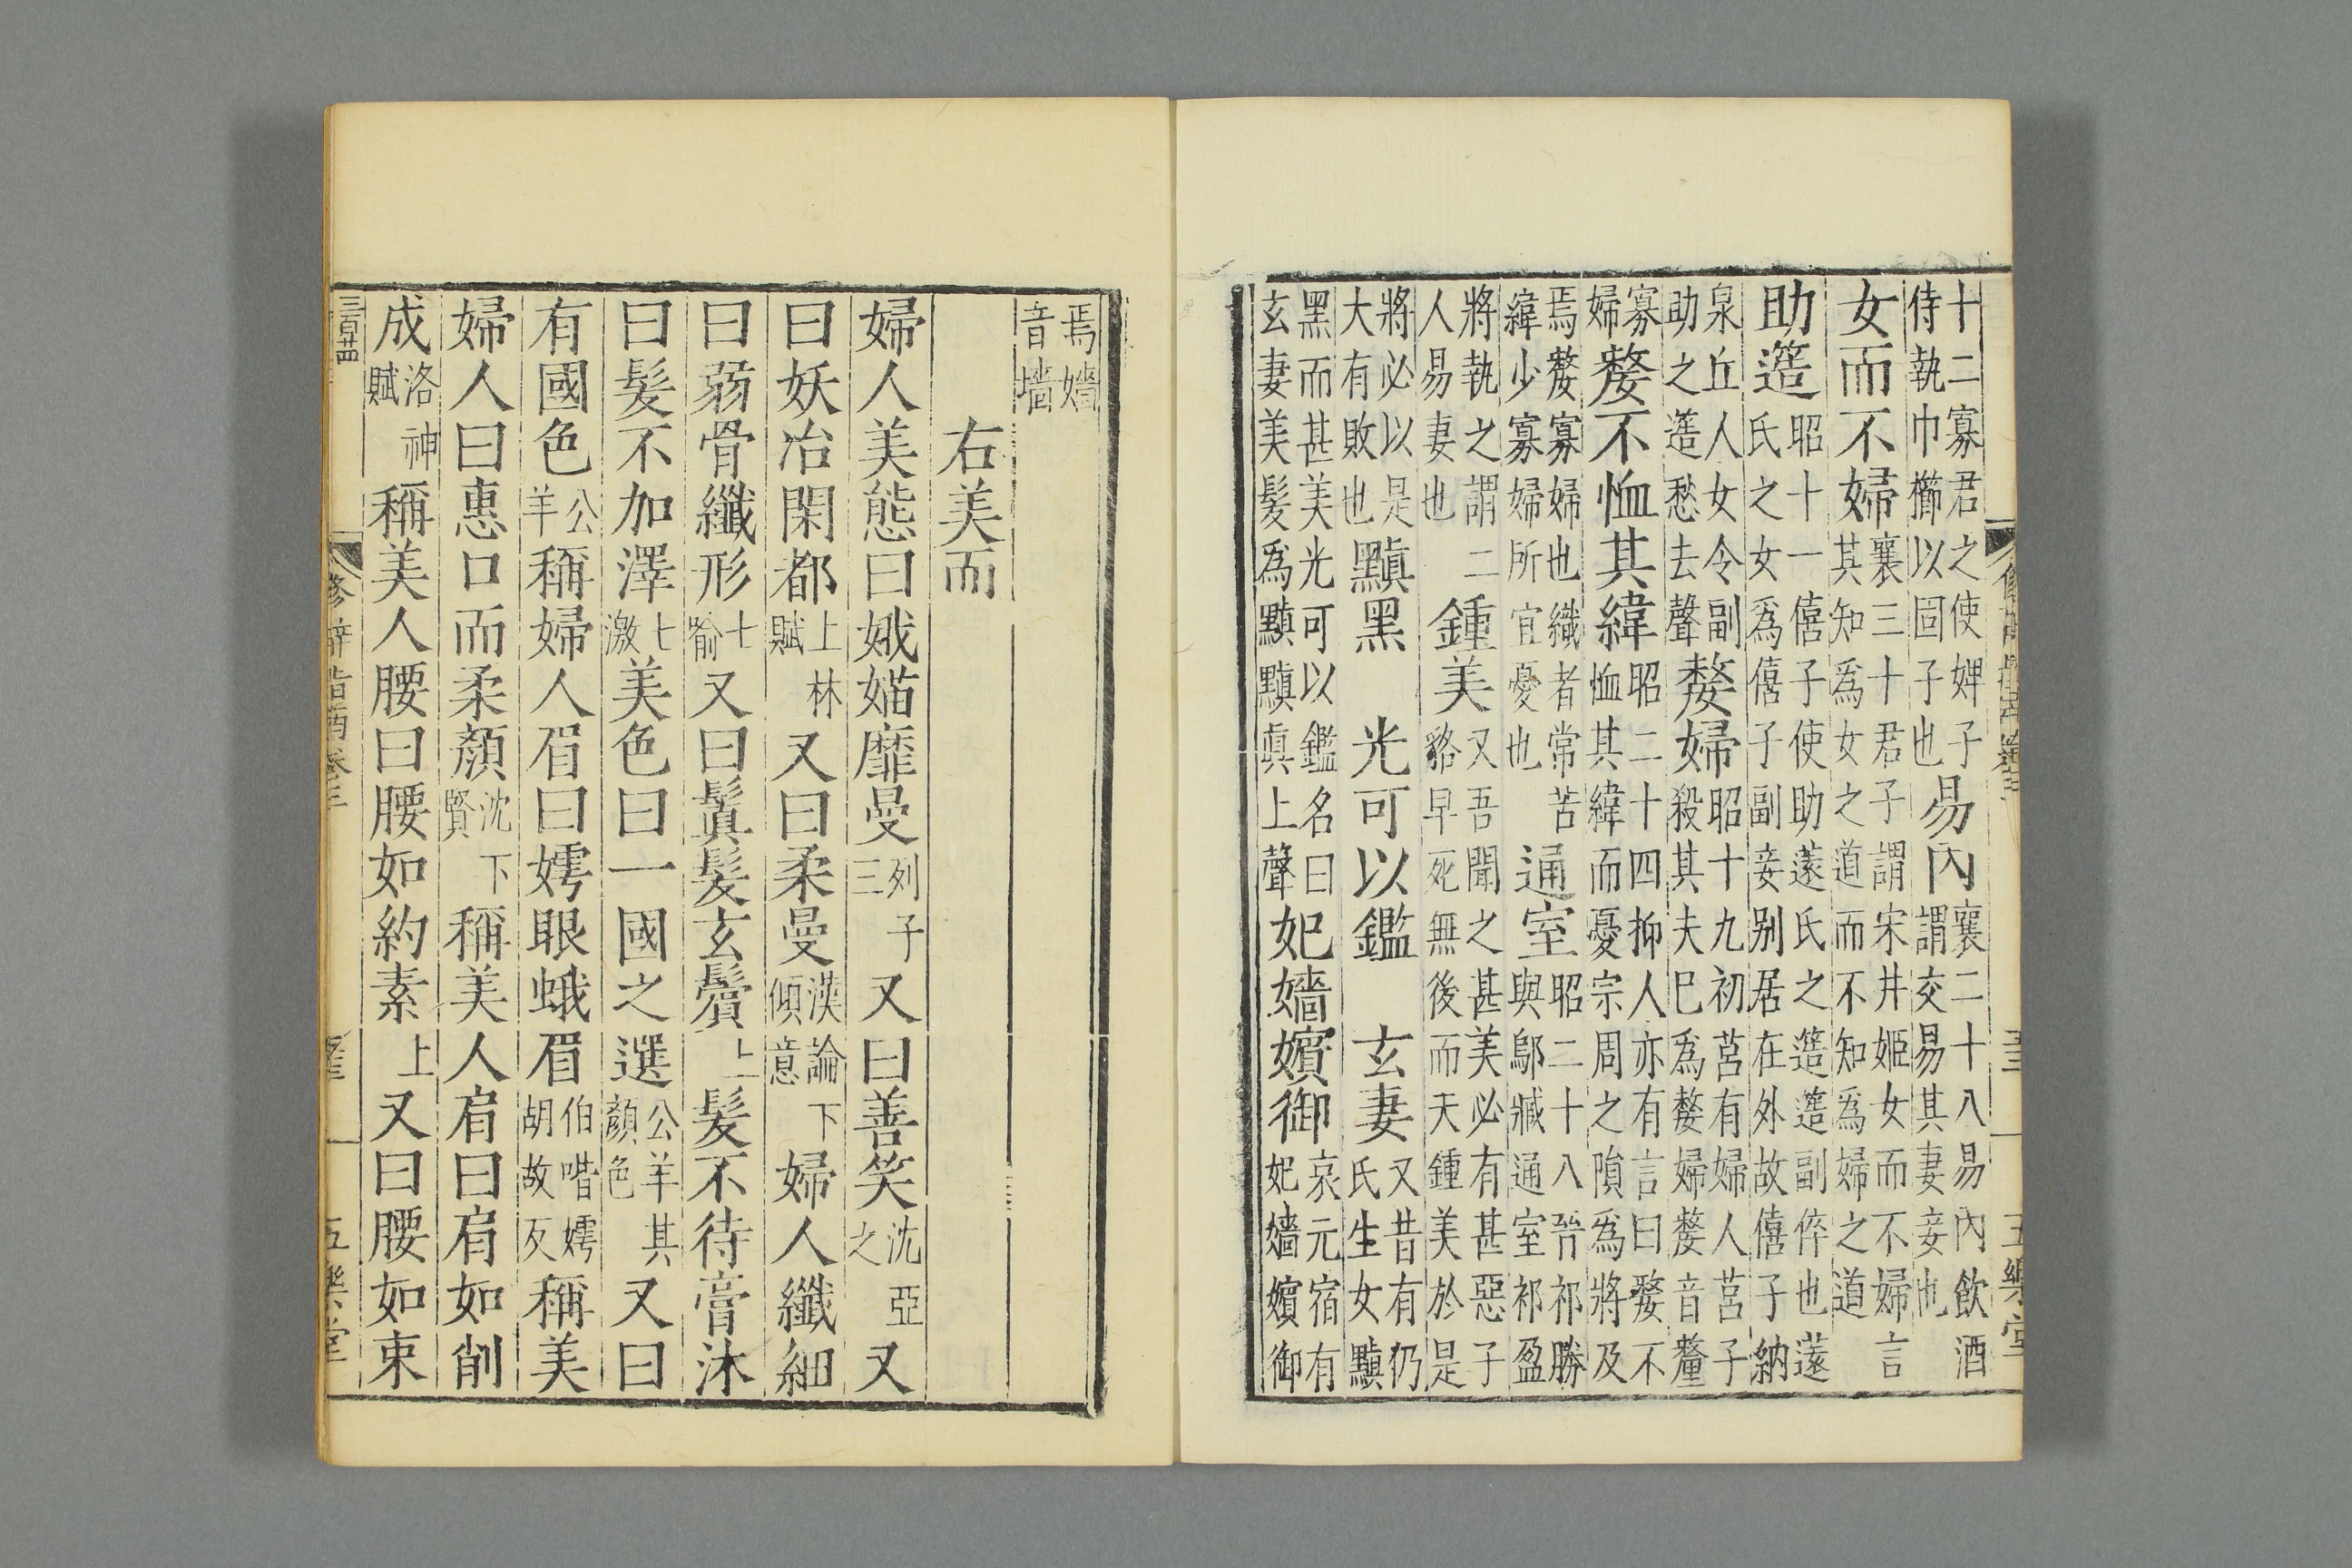 十二寡君之使婢子侍執巾櫛以固子也易內襄二十八易內飲酒謂交易其妻妾也
女而不婦襄三十君子謂宋井姬女而不婦言其知爲女之道而不知爲婦之道
助簉昭十一僖子使助薳氏之簉簉副倅也薳氏之女爲僖子副妾别居在外故僖子納
泉丘人女令副助之簉愁去聲嫠婦昭十九初莒有婦人莒子殺其夫巳爲嫠婦嫠音釐
寡婦嫠不恤其緯昭二十四抑人亦有言曰嫠不恤其緯而憂宗周之隕爲將及
焉嫠寡婦也織者常苦緯少寡婦所宜憂也通室昭二十八晉祁勝與鄔臧通室祁盈
將執之謂二人易妻也鍾美又吾聞之甚美必有甚惡子貉早死無後而天鍾美於是
將必以是大有敗也黰黑 光可以鑑 玄妻又昔有仍氏生女黰
黑而甚美光可以鑑名曰玄妻美髮爲黰黰眞上聲妃嬙嬪御哀元宿有妃嬙嬪御
焉嬙音墻
右美而
婦人美態曰娥媌靡曼列子三又曰善笑沈亞之又
曰妖冶閑都上林賦又曰柔曼漢論下傾意婦人纖細
曰弱骨纖形七喻又曰鬒髮玄鬢上髮不待膏沐
曰髮不加澤七激美色曰一國之選公羊其顏色又曰
有國色公羊稱婦人眉曰嫮眼蛾眉伯喈嫮胡故反稱美
婦人曰惠口而柔顏沈下賢稱美人肩曰肩如削
成洛神賦稱美人腰曰腰如約素上又曰腰如束
修辭指南卷三 五樂堂